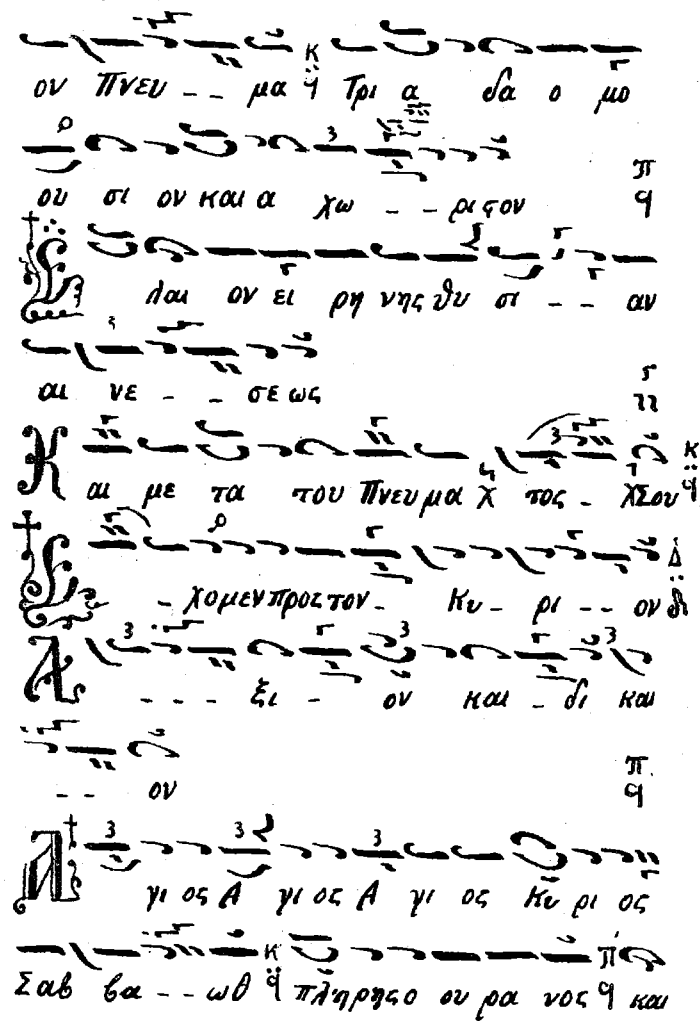 ον Πνευ - - μα Τρι α δα ο μο
ου σι ον και α χω - - ρι στον
Ε λαι ον ει ρη νης θυ σι - - αν
αι νε - - σε ως
Κ αι με τα του Πνευ μα τος - Σου
Ε - χο μεν προς τον - Κυ - ρι - - ον
Α - - - ξι - ον και - δι και
- - ον
Α γι ος Α γι ος Α γι ος Κυ ρι ος
Σαβ βα - - ωθ πλη ρης ο ου ρα νος και